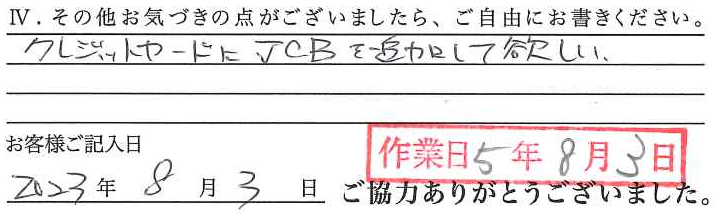 Ⅳ．その他お気づきの点がございましたら、ご自由にお書きください。
クレジットカードに JCB を追加して欲しい、
お客様ご記入日
作業日 5 年 8 月 3 日
2023 年 8 月 3 日
ご協力ありがとうございました。